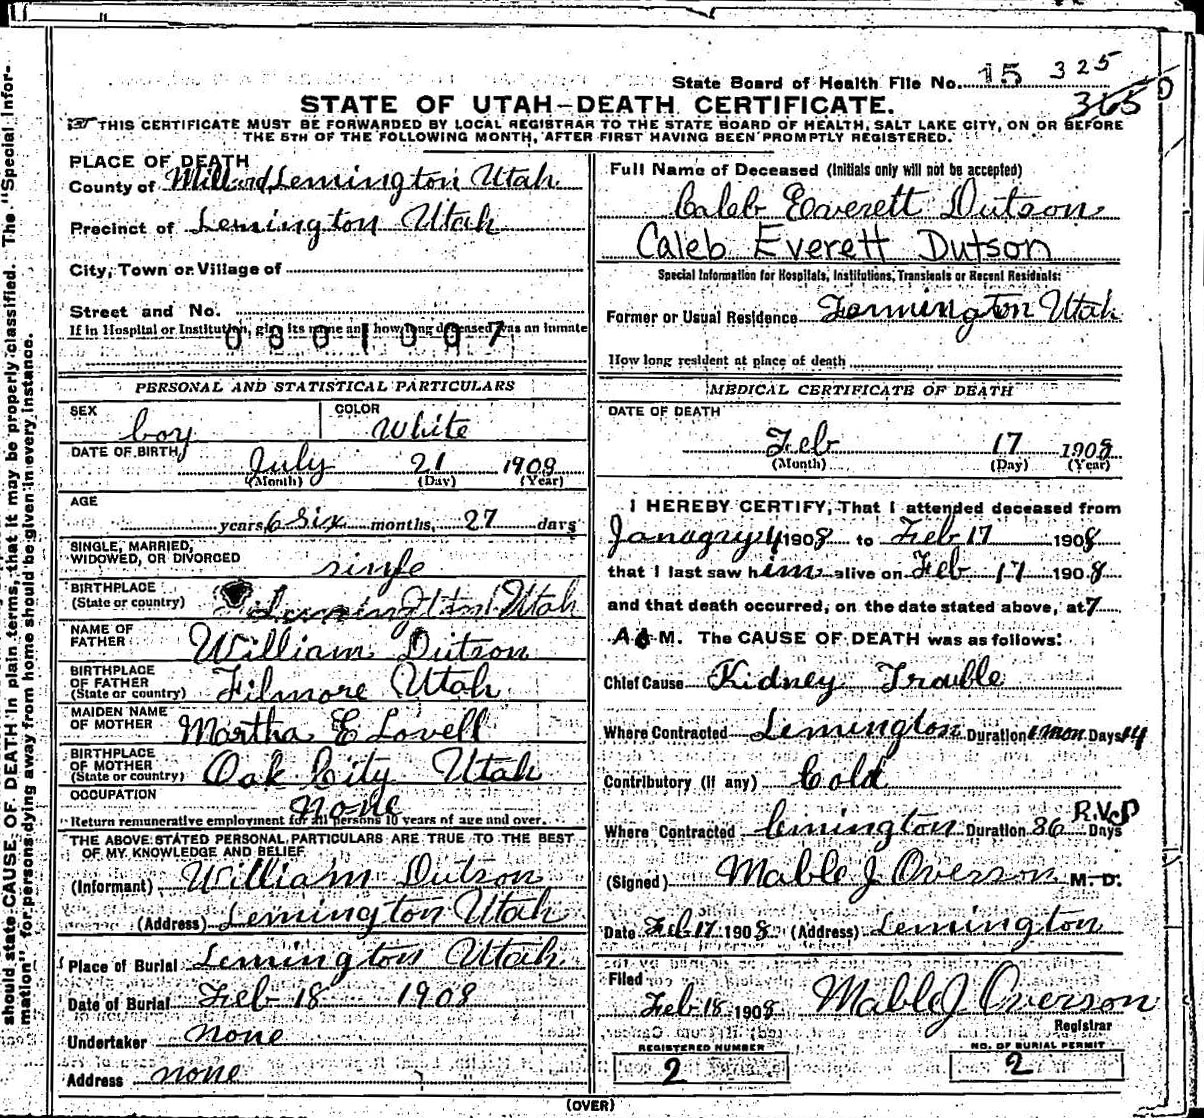 State Board of Health File No. 15 325
365
STATE OF UTAH—DEATH CERTIFICATE.
THIS CERTIFICATE MUST BE FORWARDED BY LOCAL REGISTRAR TO THE STATE BOARD OF HEALTH, SALT LAKE CITY, ON OR BEFORE
THE 5TH OF THE FOLLOWING MONTH, AFTER FIRST HAVING BEEN PROMPTLY REGISTERED.
PLACE OF DEATH
County of Millard Lemington Utah
Precinct of Lemington Utah
City, Town or Village of
Street and No.
If in Hospital or Institution, give its name and how long deceased was an inmate
0801007
PERSONAL AND STATISTICAL PARTICULARS
SEX boy COLOR White
DATE OF BIRTH July 21 1908
(Month) (Day) (Year)
AGE
years, 6 six months, 27 days
SINGLE, MARRIED,
WIDOWED, OR DIVORCED single
BIRTHPLACE
(State or country) Lemington Utah
NAME OF
FATHER William Dutson
BIRTHPLACE
OF FATHER
(State or country) Filmore Utah
MAIDEN NAME
OF MOTHER Martha E Lovell
BIRTHPLACE
OF MOTHER
(State or country) Oak City Utah
OCCUPATION none
Return remunerative employment for all persons 10 years of age and over.
THE ABOVE STATED PERSONAL PARTICULARS ARE TRUE TO THE BEST
OF MY KNOWLEDGE AND BELIEF
(Informant) William Dutson
(Address) Lemington Utah
Place of Burial Lemington Utah
Date of Burial Feb 18 1908
Undertaker none
Address none
Full Name of Deceased (Initials only will not be accepted)
Caleb Everett Dutson
Caleb Everett Dutson
Special Information for Hospitals, Institutions, Transients or Recent Residents:
Former or Usual Residence Lemington Utah
How long resident at place of death
MEDICAL CERTIFICATE OF DEATH
DATE OF DEATH
Feb 17 1908
(Month) (Day) (Year)
I HEREBY CERTIFY, That I attended deceased from
Janagry 4 1908 to Feb 17 1908
that I last saw him alive on Feb 17 1908
and that death occurred, on the date stated above, at 7
A M. The CAUSE OF DEATH was as follows:
Chief Cause Kidney Trouble
Where Contracted Lemington Duration 1 mon Days 14
Contributory (if any) Cold
R.V.S
Where Contracted Lemington Duration 36 Days
(Signed) Mable J Overson M. D.
Date Feb 17 1908 (Address) Lemington
Filed
Feb 18 1908 Mable J Overson
Registrar
REGISTERED NUMBER
2
NO. OF BURIAL PERMIT
2
(OVER)
should state CAUSE OF DEATH in plain terms, that it may be properly classified. The "Special Infor-
mation" for persons dying away from home should be given in every instance.